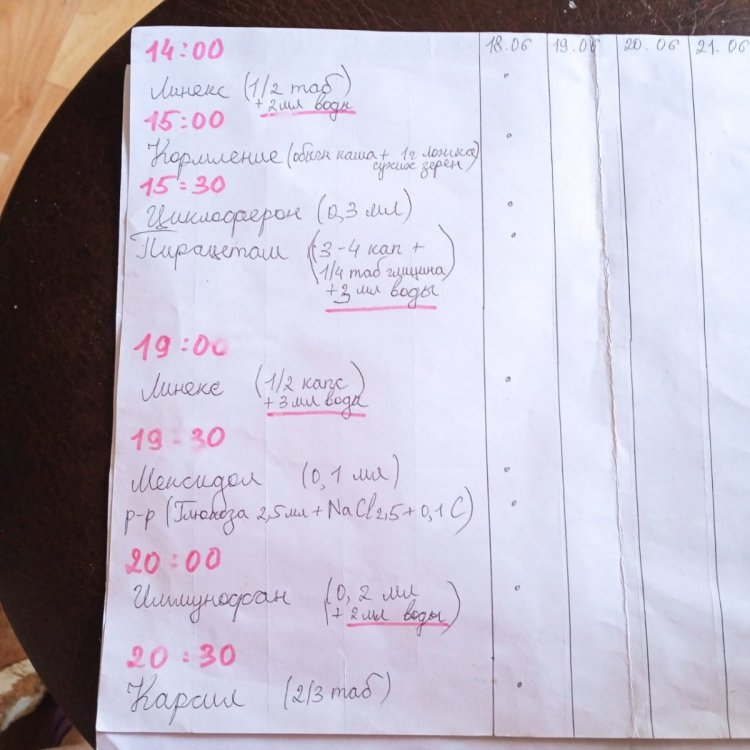 18.06 19.06 20.06 21.06
14:00
Линекс (1/2 таб
+ 2 мл воды
15:00
Кормление (обычн каша + 1г ложка
сухих зерен)
15:30
Циклоферон (0,3 мл)
Пирацетам (3-4 кап +
1/4 таб глицина)
+ 3 мл воды
19:00
Линекс (1/2 капс)
+ 3 мл воды
19-30
Мексидол (0,1 мл)
р-р (Глюкоза 2,5мл + NaCl 2,5 + 0,1 C)
20:00
Иммунофан (0,2 мл
+ 2 мл воды)
20:30
Карсил (2/3 таб)